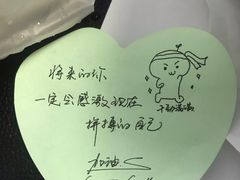 将来的你
一定会感激现在
拼搏的自己
加油